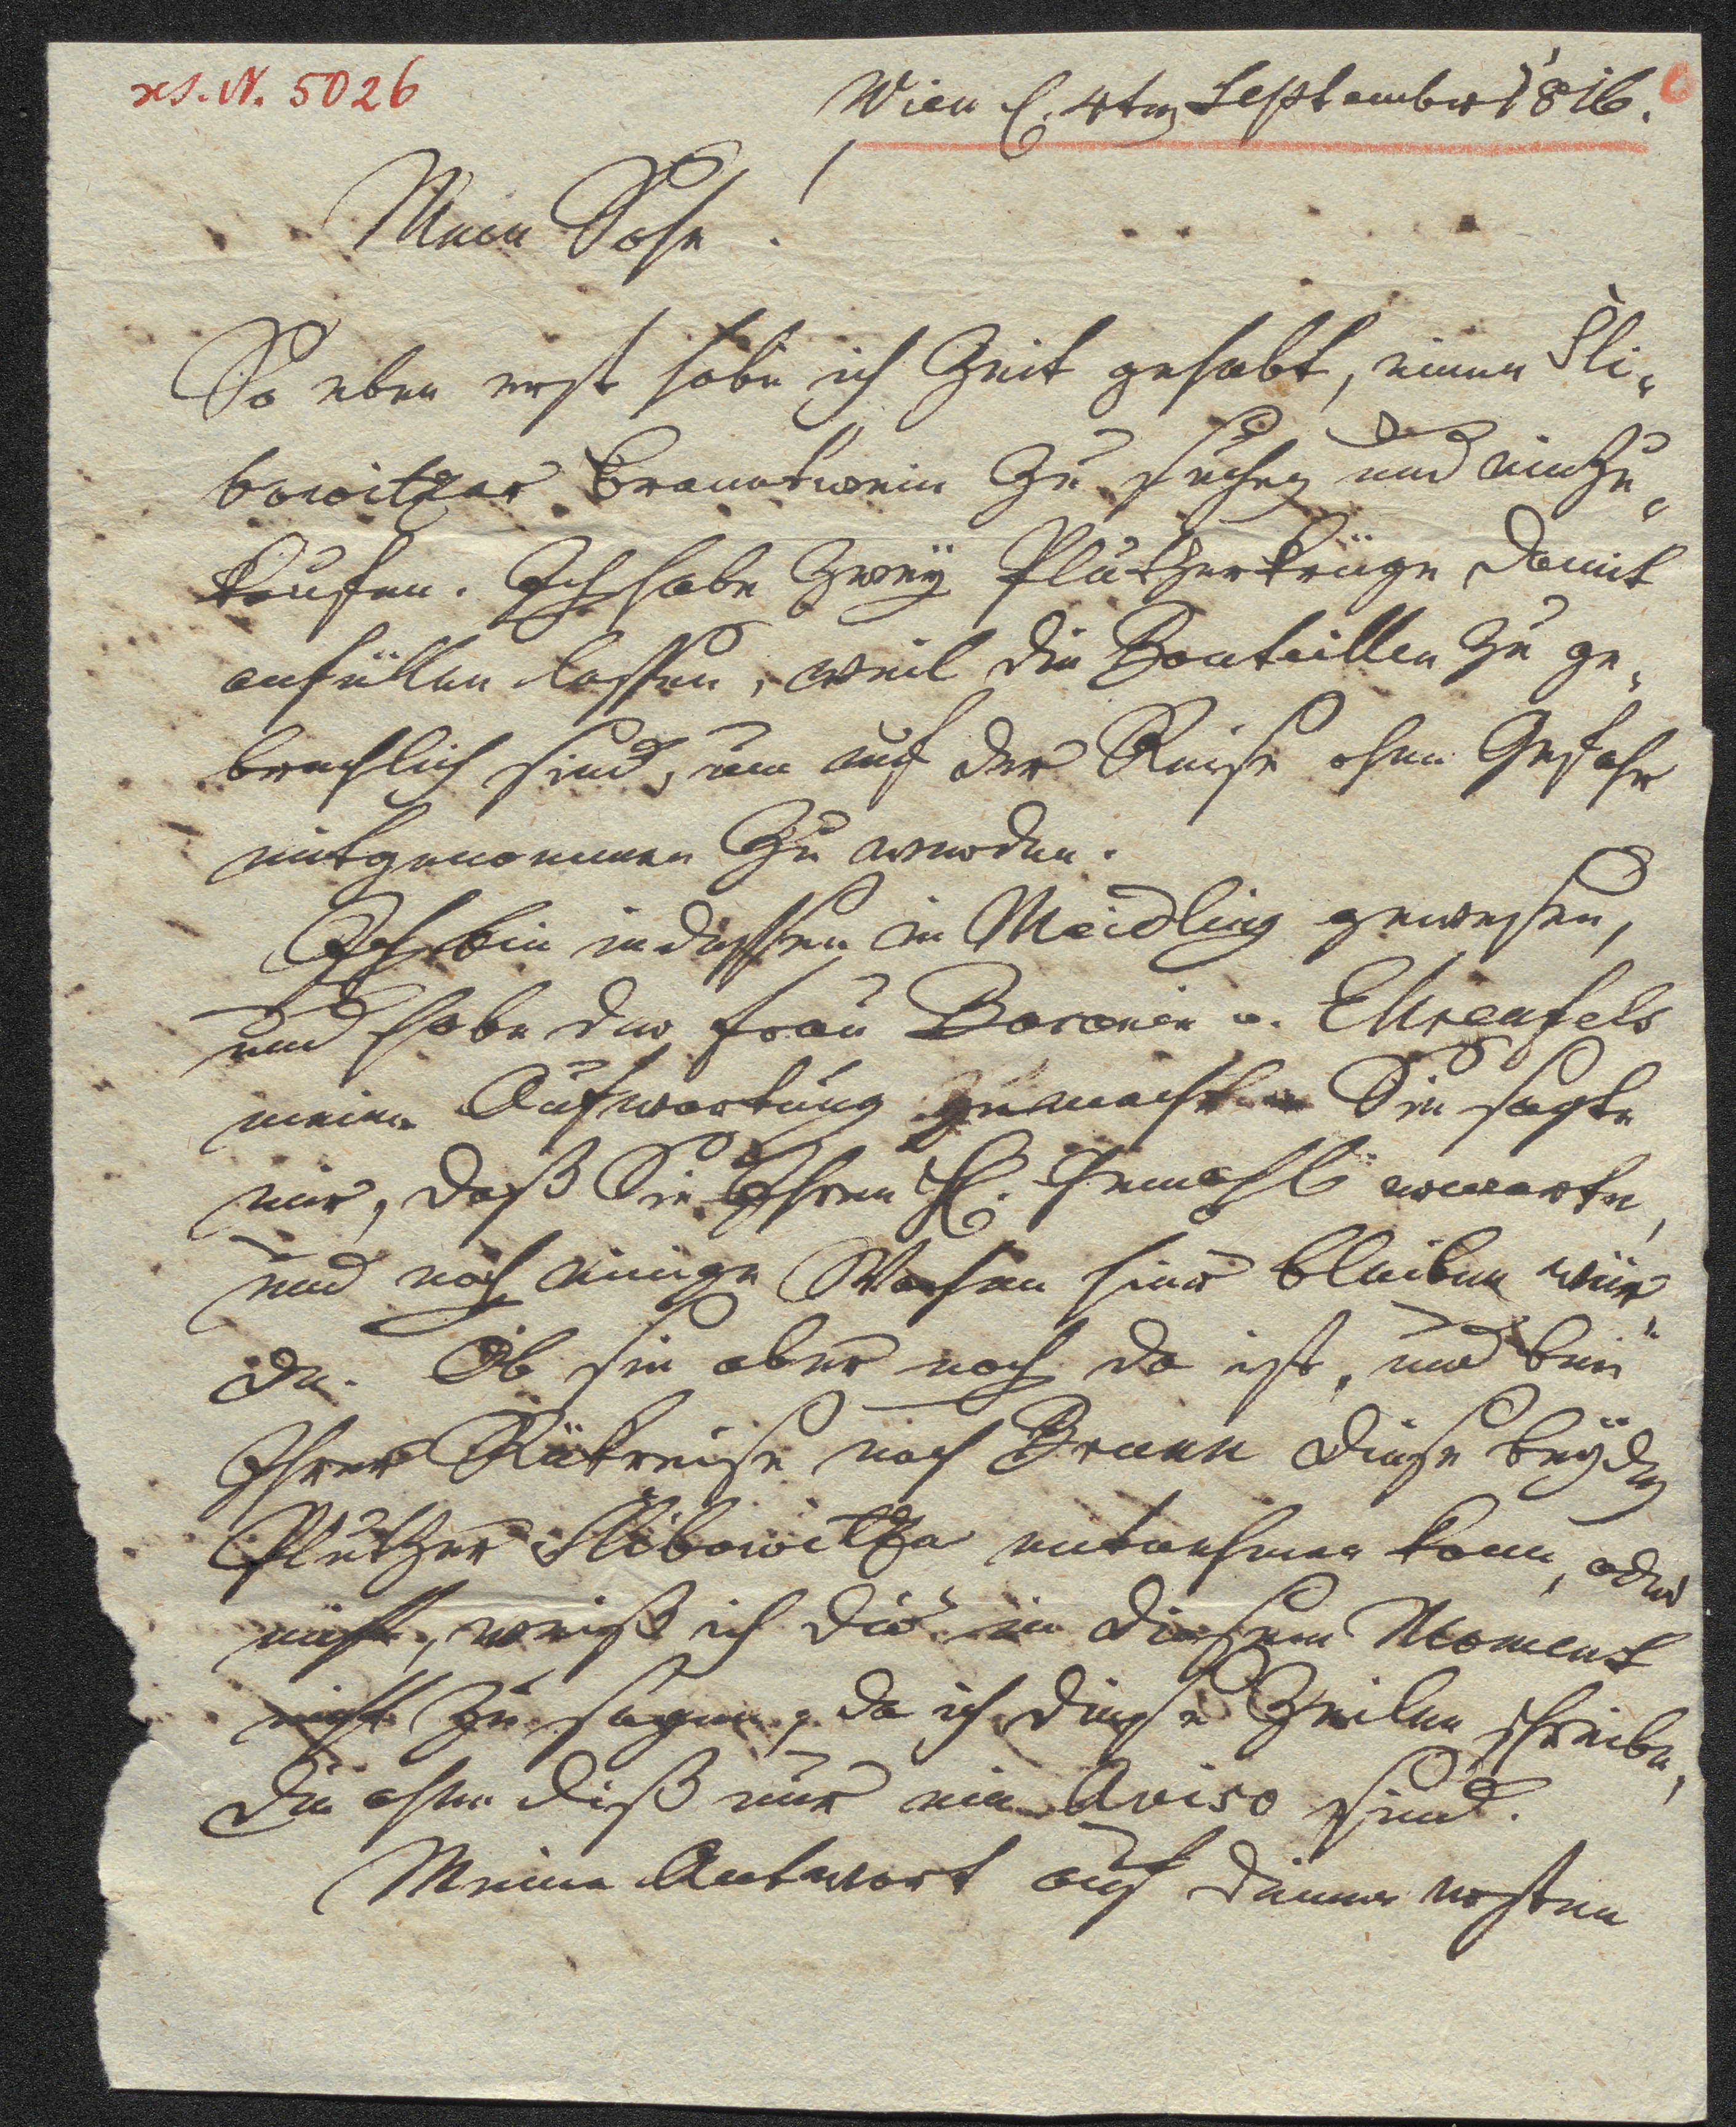 xs. N. 5026
Wien d. 4ten September 1816.
Mein Sohn!
So eben erst habe ich Zeit gehabt, einen Sli-
bowitzer Branntwein zu suchen und einzu-
kaufen. Ich habe zweÿ Plutzerkrüge damit
anfüllen lassen, weil die Bouteillen zu ge-
brechlich sind, um auf der Reise ohne Gefahr
mitgenommen zu werden.
Ich bin indessen in Meidling gewesen,
und habe der Frau Baronin v. Ehrenfels
meine Aufwartung gemacht. Sie sagte
mir, daß Sie Ihren H. Gemahl erwarte,
und noch einige Wochen hier bleiben wür-
de. Ob sie aber noch da ist, und beÿ
Ihrer Rükreise nach Brunn diese beÿden
Plutzer Slibowitza mitnehmen kann, oder
nicht, weiß ich dir in diesem Moment
nicht zu sagen, da ich diese Zeilen schreibe,
die ohne diß nur ein Aviso sind.
Meine Antwort auf deinen ersten